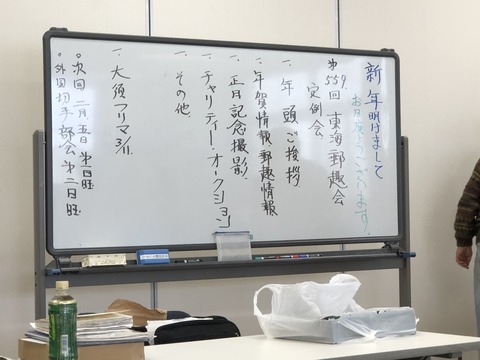 新年明けまして
おめでとうございます。
第559回 東海郵趣会
定例会
一. 年頭ご挨拶
一. 年賀情報 郵趣情報
一. 正月記念撮影.
一. チャリティー・オークション
一. その他
一. 大須フリマ3/11.
○次回 二月五日 第一日曜
○外国切手部会 第二日曜